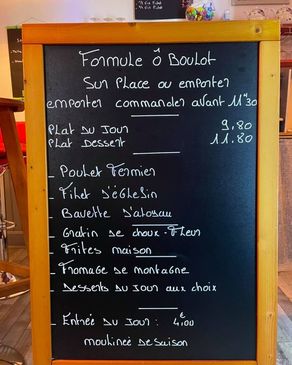 Formule Ô Boulot
Sur Place ou emporter
emporter commander avant 11"30
Plat du Jour 9,80
Plat Dessert 11.80
- Poulet Fermier
- Filet d'églefin
- Bavette d'aloyau
- Gratin de choux-fleur
- Frites maison
- Fromage de montagne
- Desserts du Jour aux choix
- Entrée du Jour : 4,00
moulinée de saison